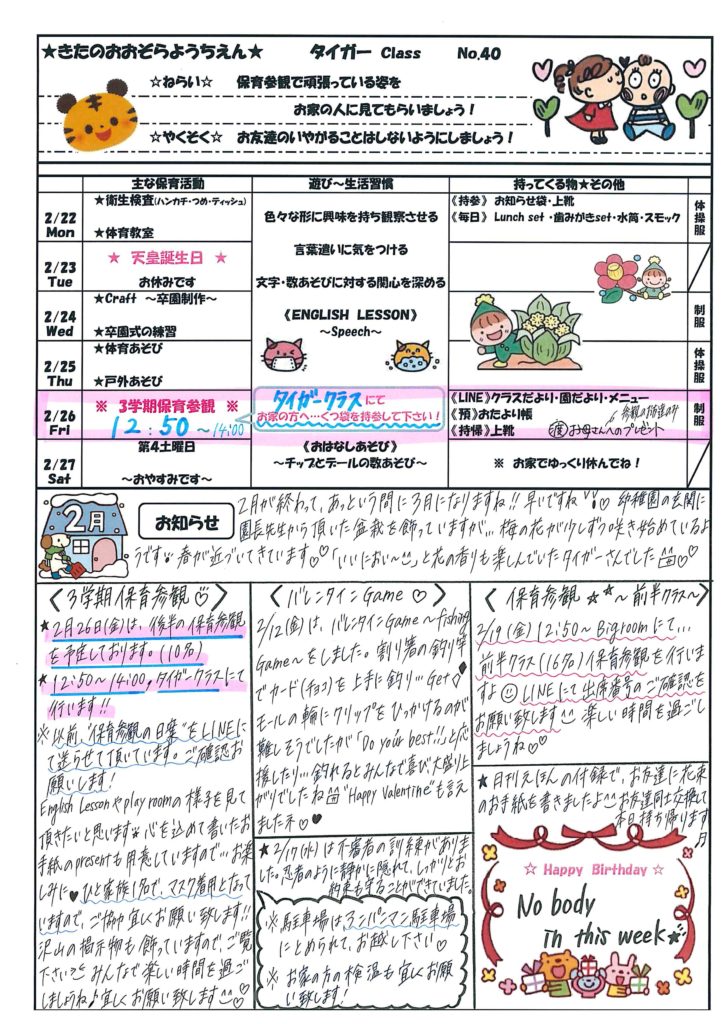 ★きたのおおぞらようちえん★ タイガー Class No.40
☆ねらい☆ 保育参観で頑張っている姿を
お家の人に見てもらいましょう！
☆やくそく☆ お友達のいやがることはしないようにしましょう！
主な保育活動 遊び～生活習慣 持ってくる物★その他
2/22
Mon
★衛生検査(ハンカチ・つめ・ティッシュ)
★体育教室
色々な形に興味を持ち観察させる
《持参》 お知らせ袋・上靴
《毎日》 Lunch set ・歯みがきset・水筒・スモック
体操服
2/23
Tue
★ 天皇誕生日 ★
お休みです
言葉遣いに気をつける
文字・数あそびに対する関心を深める
2/24
Wed
★Craft ～卒園制作～
★卒園式の練習
《ENGLISH LESSON》
～Speech～
制服
2/25
Thu
★体育あそび
★戸外あそび
体操服
2/26
Fri
※ 3学期保育参観 ※
12:50～14:00
タイガークラスにて
お家の方へ…くつ袋を持参して下さい！
《LINE》クラスだより・園だより・メニュー
《預》おたより帳
《持帰》上靴
お母さんへのプレゼント
制服
2/27
Sat
第4土曜日
～おやすみです～
《おはなしあそび》
～チップとデールの数あそび～
※ お家でゆっくり休んでね！
2月
お知らせ
2月が終わって、あっという間に3月になりますね!!早いですね!!♡幼稚園の玄関に
園長先生から頂いた盆栽を飾っていますが…梅の花が少しずつ咲き始めているよ
うです♪春が近づいてきています♡♡「いいにおい～」と花の香りも楽しんでいたタイガーさんでした♡
〈3学期保育参観♡〉
★2月26日(金)は、後半の保育参観
を予定しております。(10名)
★12:50～14:00,タイガークラスにて
行います!!
※以前、"保育参観の日案"をLINEに
て送らせて頂いています。ご確認お
願いします！
English Lessonやplay roomの様子を見て
頂きたいと思います*心を込めて書いたお
手紙のpresentも用意していますので…お楽
しみに♥ひと家族1名で、マスク着用となって
いますので、ご協力宜しくお願い致します!!
沢山の掲示物も飾っていますので、ご覧
下さい?みんなで楽しい時間を過ご
しましょうね♪宜しくお願い致します♡
〈バレンタインGame♡〉
2/12(金)は、バレンタインGame～fishing
Game～をしました。割り箸の釣り竿
でカード(チョコ)を上手に釣り…Get◇
モールの輪にクリップをひっかけるのが
難しそうでしたが「Do your best!!」と応
援したり…釣れるとみんなで喜び、大盛り上
がりでしたね "Happy Valentine"も言え
ましたネ♡♥
★2/17(水)は不審者の訓練がありま
した。忍者のように静かに隠れて、しっかりとお
約束も守ることができていました。
※駐車場は、アンパンマン駐車場
にとめられて、お越し下さい♡
※お家の方の検温も宜しくお願
い致します！
〈保育参観★★～前半クラス～〉
2/19(金)12:50～Big roomにて…
前半クラス(16名)保育参観を行いま
すよ☺LINEにて出席番号のご確認を
お願い致します 楽しい時間を過ごし
ましょうね♡♡
★月刊えほんの付録で、お友達に花束
のお手紙を書きましたよ お友達同士交換して
本日持ち帰ります♬
☆ Happy Birthday ☆
No body
in this week★